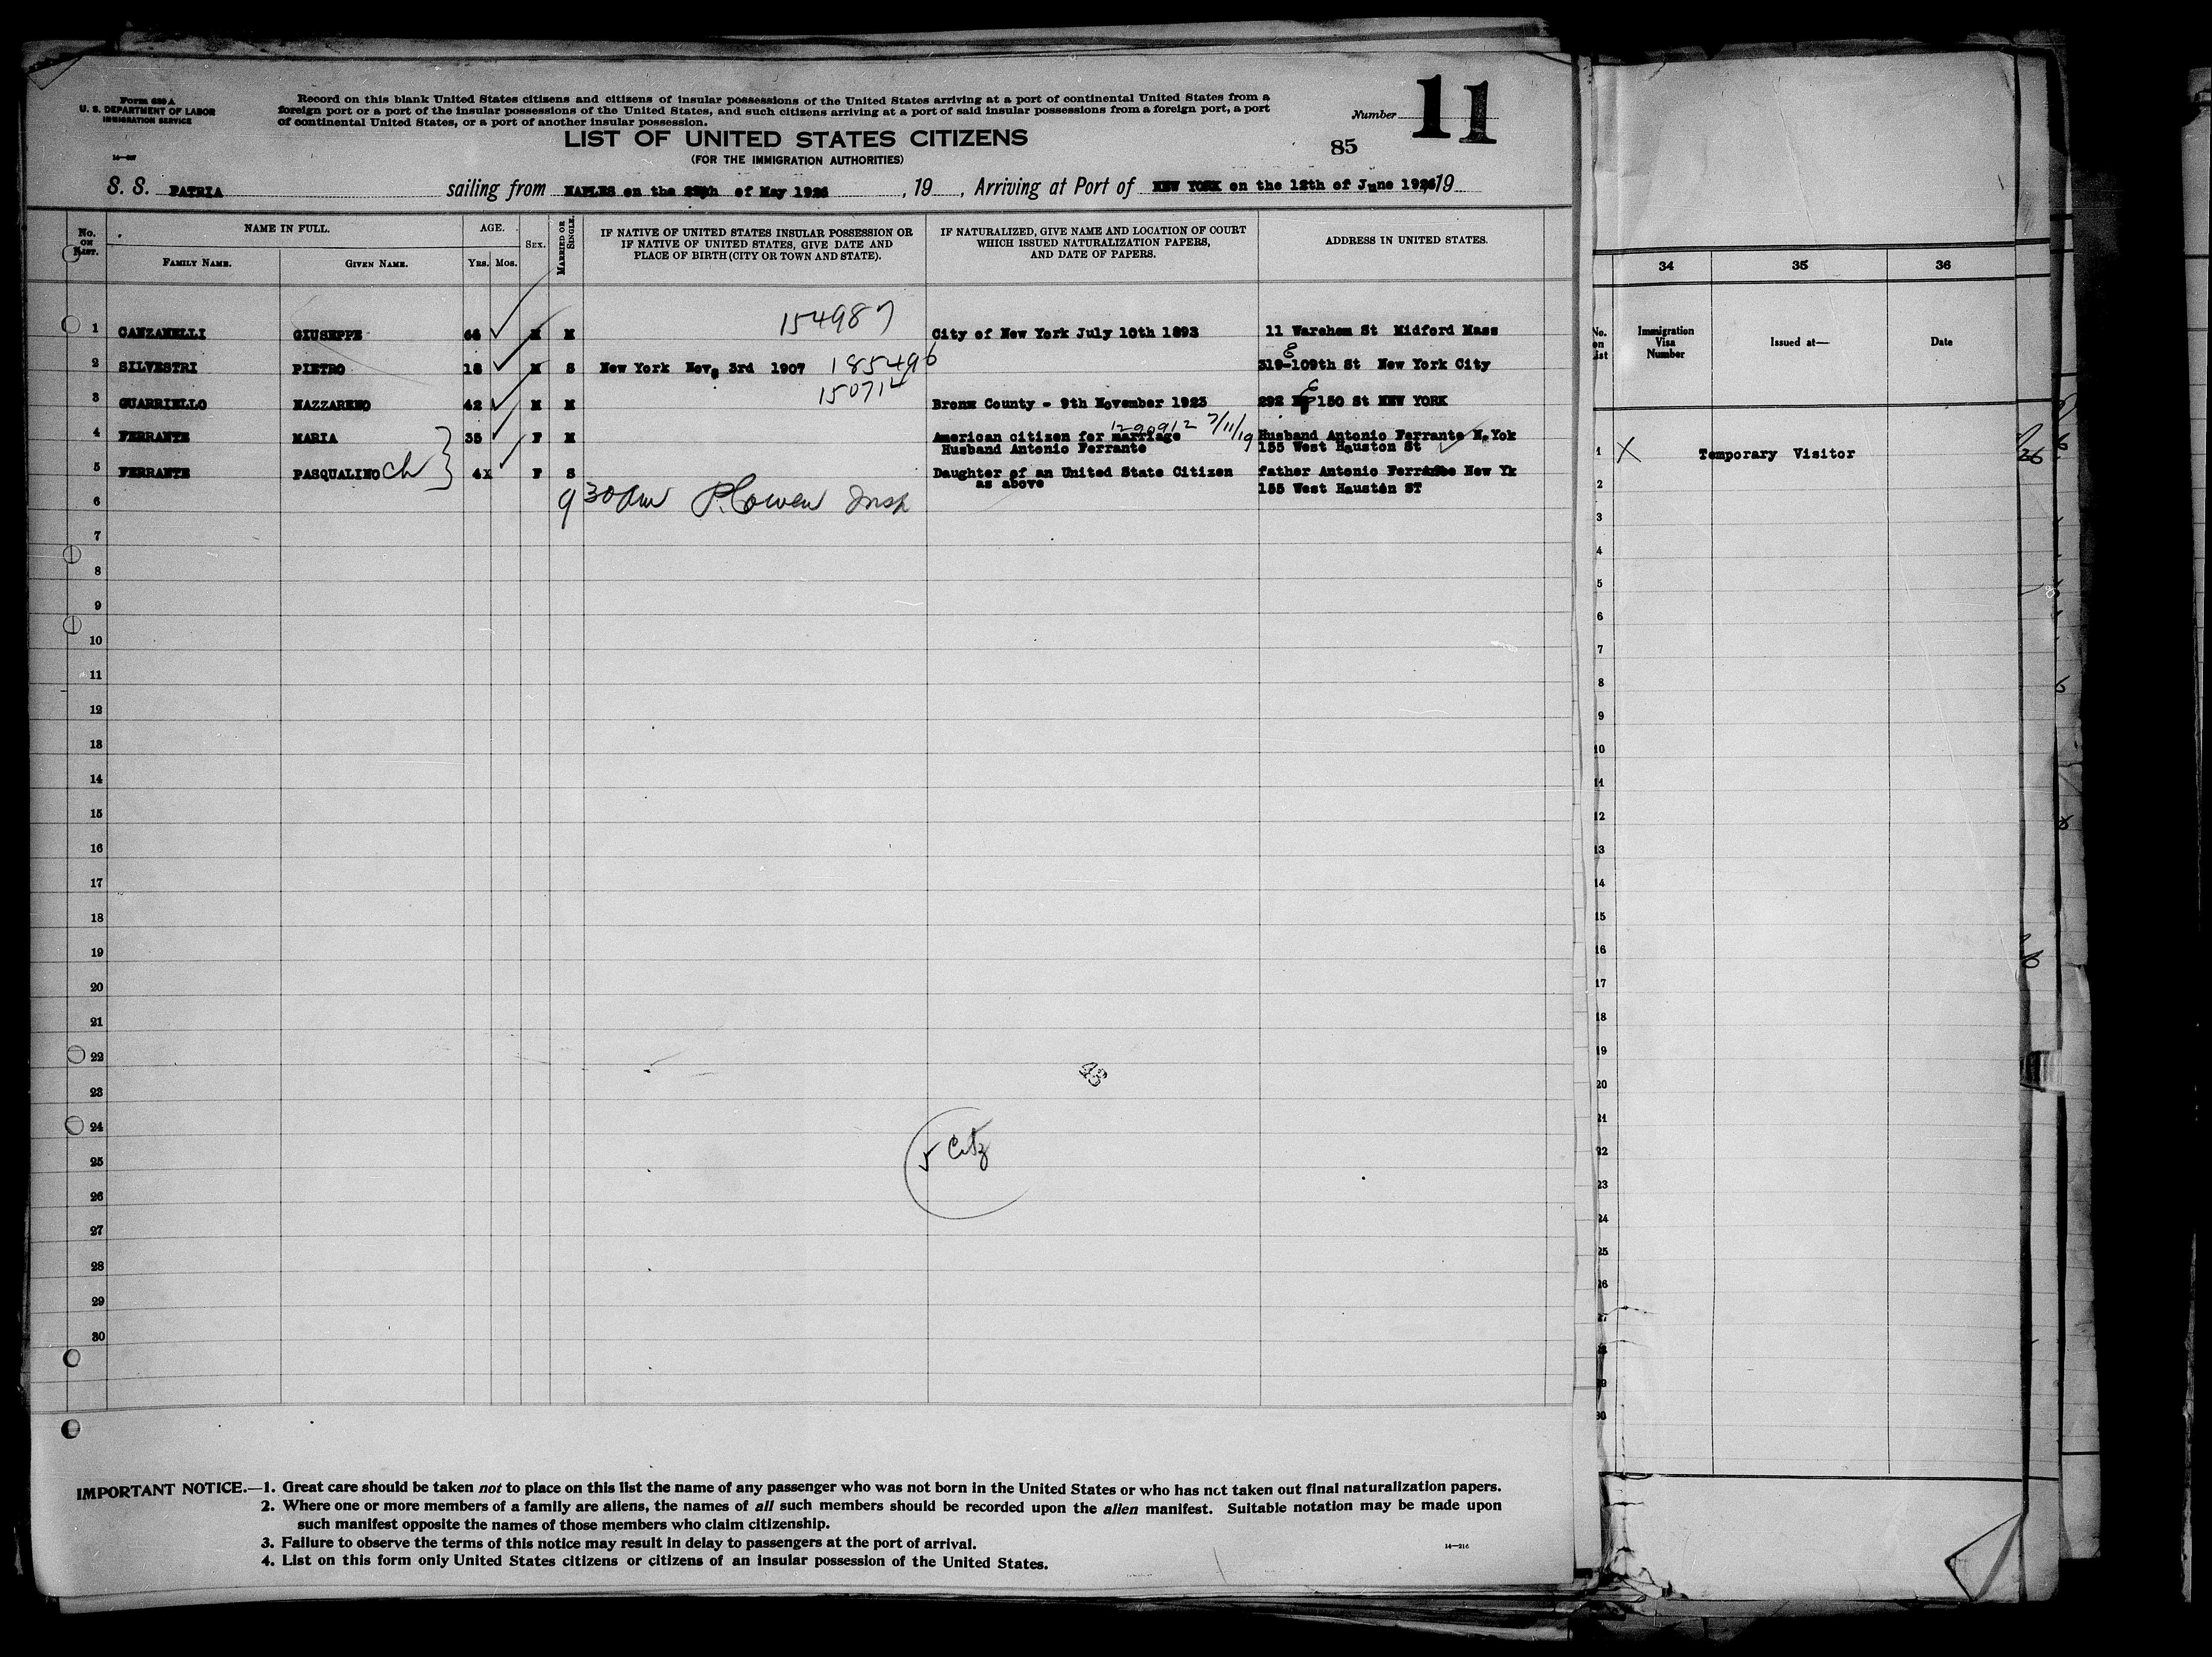 Form 630 A
U. S. DEPARTMENT OF LABOR
IMMIGRATION SERVICE
Record on this blank United States citizens and citizens of insular possessions of the United States arriving at a port of continental United States from a
foreign port or a port of the insular possessions of the United States, and such citizens arriving at a port of said insular possessions from a foreign port, a port
of continental United States, or a port of another insular possession.
Number 11
LIST OF UNITED STATES CITIZENS
85
(FOR THE IMMIGRATION AUTHORITIES)
S. S. PATRIA sailing from NAPLES on the of May 1926, 19 , Arriving at Port of NEW YORK on the 12th of June 1926, 19
No. ON LIST. NAME IN FULL. AGE. SEX. MARRIED OR SINGLE. IF NATIVE OF UNITED STATES INSULAR POSSESSION OR IF NATIVE OF UNITED STATES, GIVE DATE AND PLACE OF BIRTH (CITY OR TOWN AND STATE). IF NATURALIZED, GIVE NAME AND LOCATION OF COURT WHICH ISSUED NATURALIZATION PAPERS, AND DATE OF PAPERS. ADDRESS IN UNITED STATES.
FAMILY NAME. GIVEN NAME. YRS. MOS.
154987
1 CANZANELLI GIUSEPPE 66 M M City of New York July 10th 1893 11 Wareham St Midford Mass
E
2 SILVESTRI PIETRO 18 M S New York Nov. 3rd 1907 185496 319-109th St New York City
150714 E
3 GUARRIELLO NAZZARENO 42 M M Bronx County - 9th November 1923 292 150 St NEW YORK
1290912 7/11/19
4 FERRANTE MARIA 35 F M American citizen for marriage Husband Antonio Ferrante N.Yok
Husband Antonio Ferrante 155 West Hauston St
5 FERRANTE PASQUALINO Ch 4X F S Daughter of an United State Citizen father Antonio Ferrante New Yk
as above 155 West Hauston ST
6 9 30 am P. Cowen Insp
7
8
9
10
11
12
13
14
15
16
17
18
19
20
21
22
23
24
25
26
27
28
29
30
43
5 Citz
IMPORTANT NOTICE.—1. Great care should be taken not to place on this list the name of any passenger who was not born in the United States or who has not taken out final naturalization papers.
2. Where one or more members of a family are aliens, the names of all such members should be recorded upon the alien manifest. Suitable notation may be made upon
such manifest opposite the names of those members who claim citizenship.
3. Failure to observe the terms of this notice may result in delay to passengers at the port of arrival.
4. List on this form only United States citizens or citizens of an insular possession of the United States.
14—216
34 35 36
No. on List Immigration Visa Number Issued at— Date
1 X Temporary Visitor 26
2
3
4
5
6
7
8
9
10
11
12
13
14
15
16
17
18
19
20
21
22
23
24
25
26
27
28
29
30